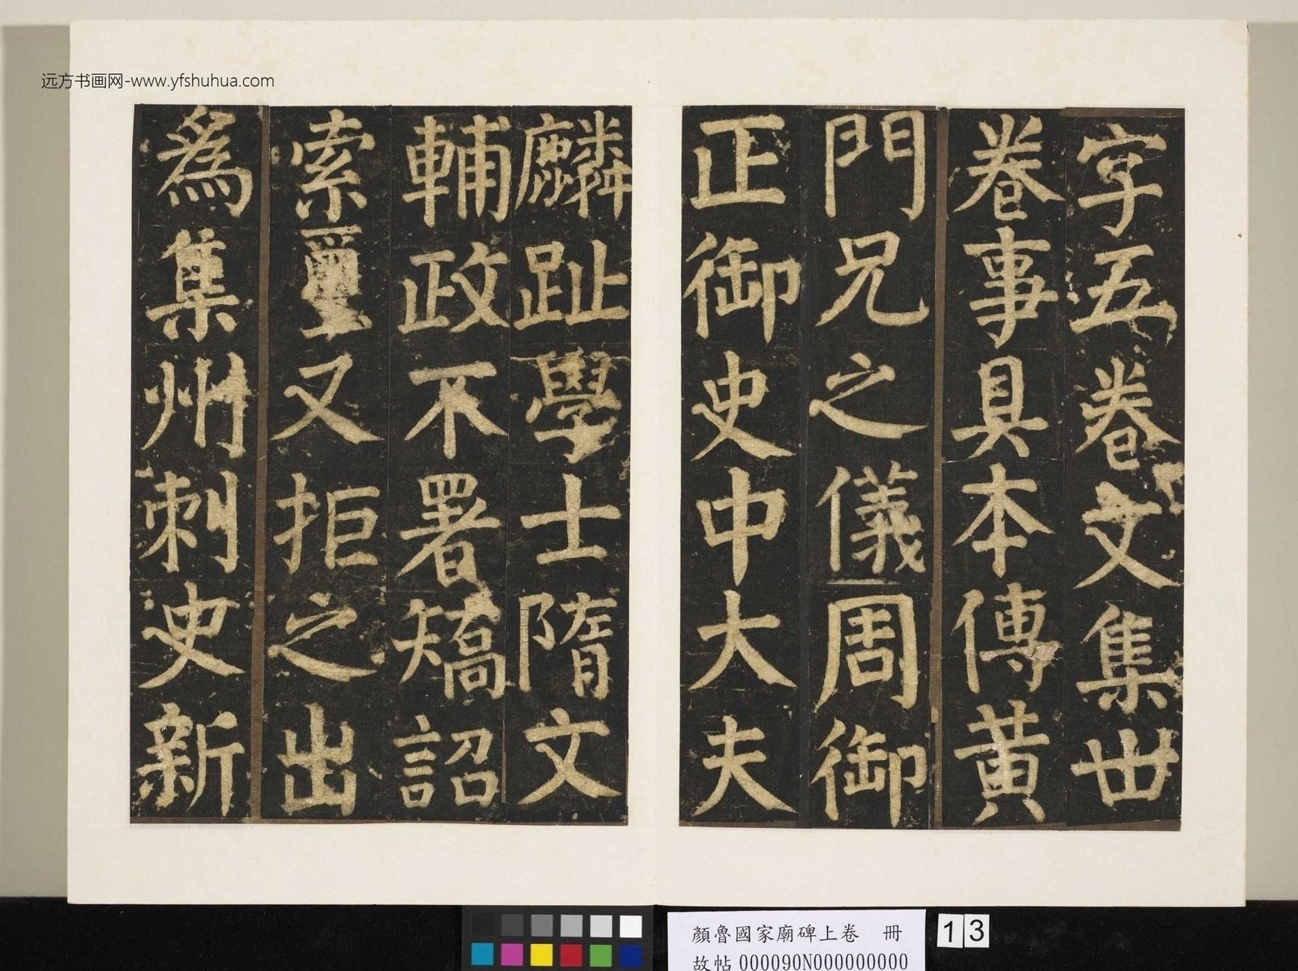 远方书画网-www.yfshuhua.com
字五卷文集丗
卷事具本傳黄
門兄之儀周御
正御史中大夫
麟趾學士隋文
輔政不署矯詔
索璽又拒之出
為集州刺史新
顏魯國家廟碑上卷 冊
故帖 000090N000000000
13